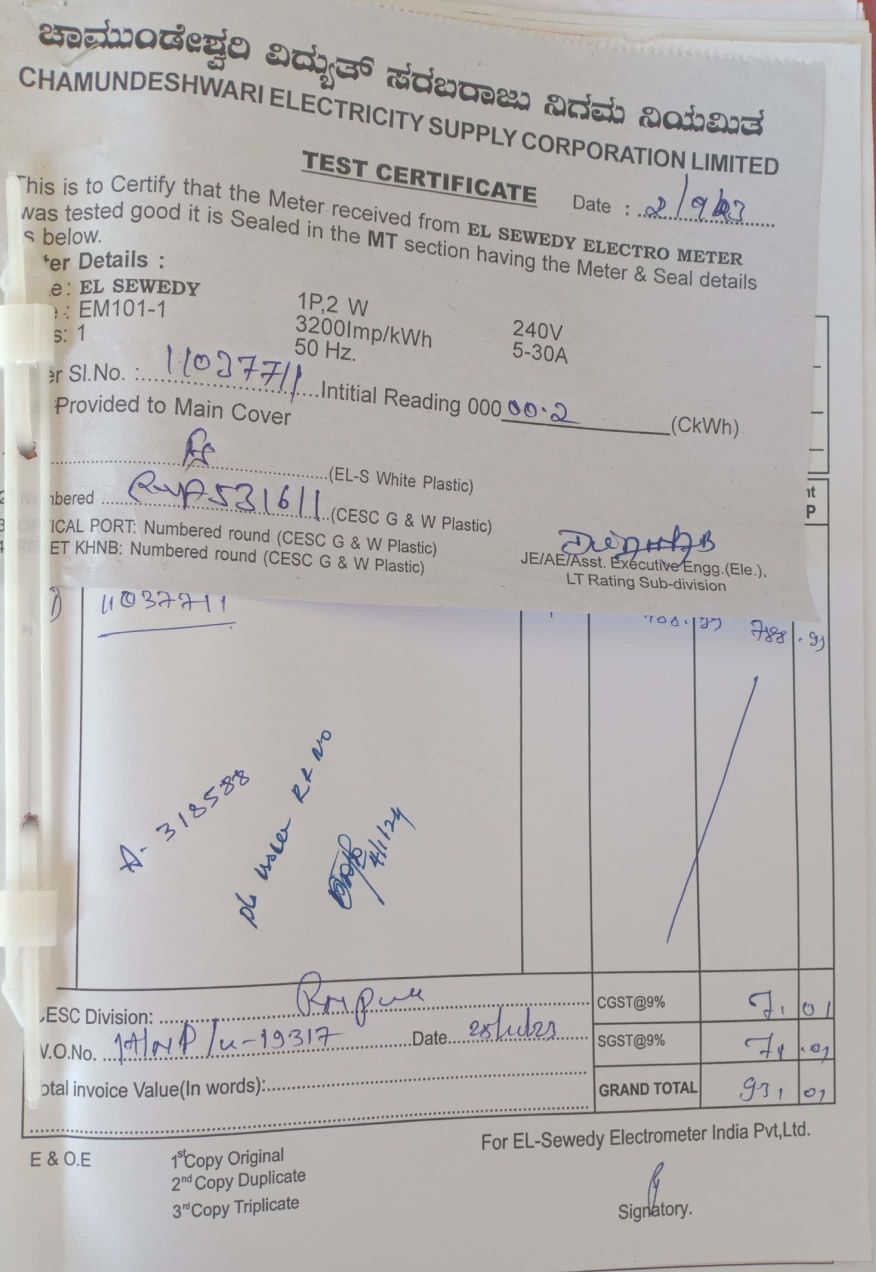 ಚಾಮುಂಡೇಶ್ವರಿ ವಿದ್ಯುತ್ ಸರಬರಾಜು ನಿಗಮ ನಿಯಮಿತ
CHAMUNDESHWARI ELECTRICITY SUPPLY CORPORATION LIMITED
TEST CERTIFICATE
Date : 2/9/23
This is to Certify that the Meter received from EL SEWEDY ELECTRO METER
was tested good it is Sealed in the MT section having the Meter & Seal details
s below.
er Details :
e : EL SEWEDY
: EM101-1 1P,2 W
s: 1 3200Imp/kWh 240V
50 Hz. 5-30A
er Sl.No. : 11037711 Intitial Reading 000 00.2 (CkWh)
Provided to Main Cover
(EL-S White Plastic)
bered 531611 (CESC G & W Plastic)
ICAL PORT: Numbered round (CESC G & W Plastic)
ET KHNB: Numbered round (CESC G & W Plastic)
JE/AE/Asst. Executive Engg.(Ele.),
LT Rating Sub-division
nt
P
1) 11037711
788.
A- 318588
RR NO
4/1/24
ESC Division:
CGST@9%
W.O.No. 19317 Date
SGST@9%
otal invoice Value(In words):
GRAND TOTAL 931 01
For EL-Sewedy Electrometer India Pvt,Ltd.
E & O.E
1st Copy Original
2nd Copy Duplicate
3rd Copy Triplicate
Signatory.